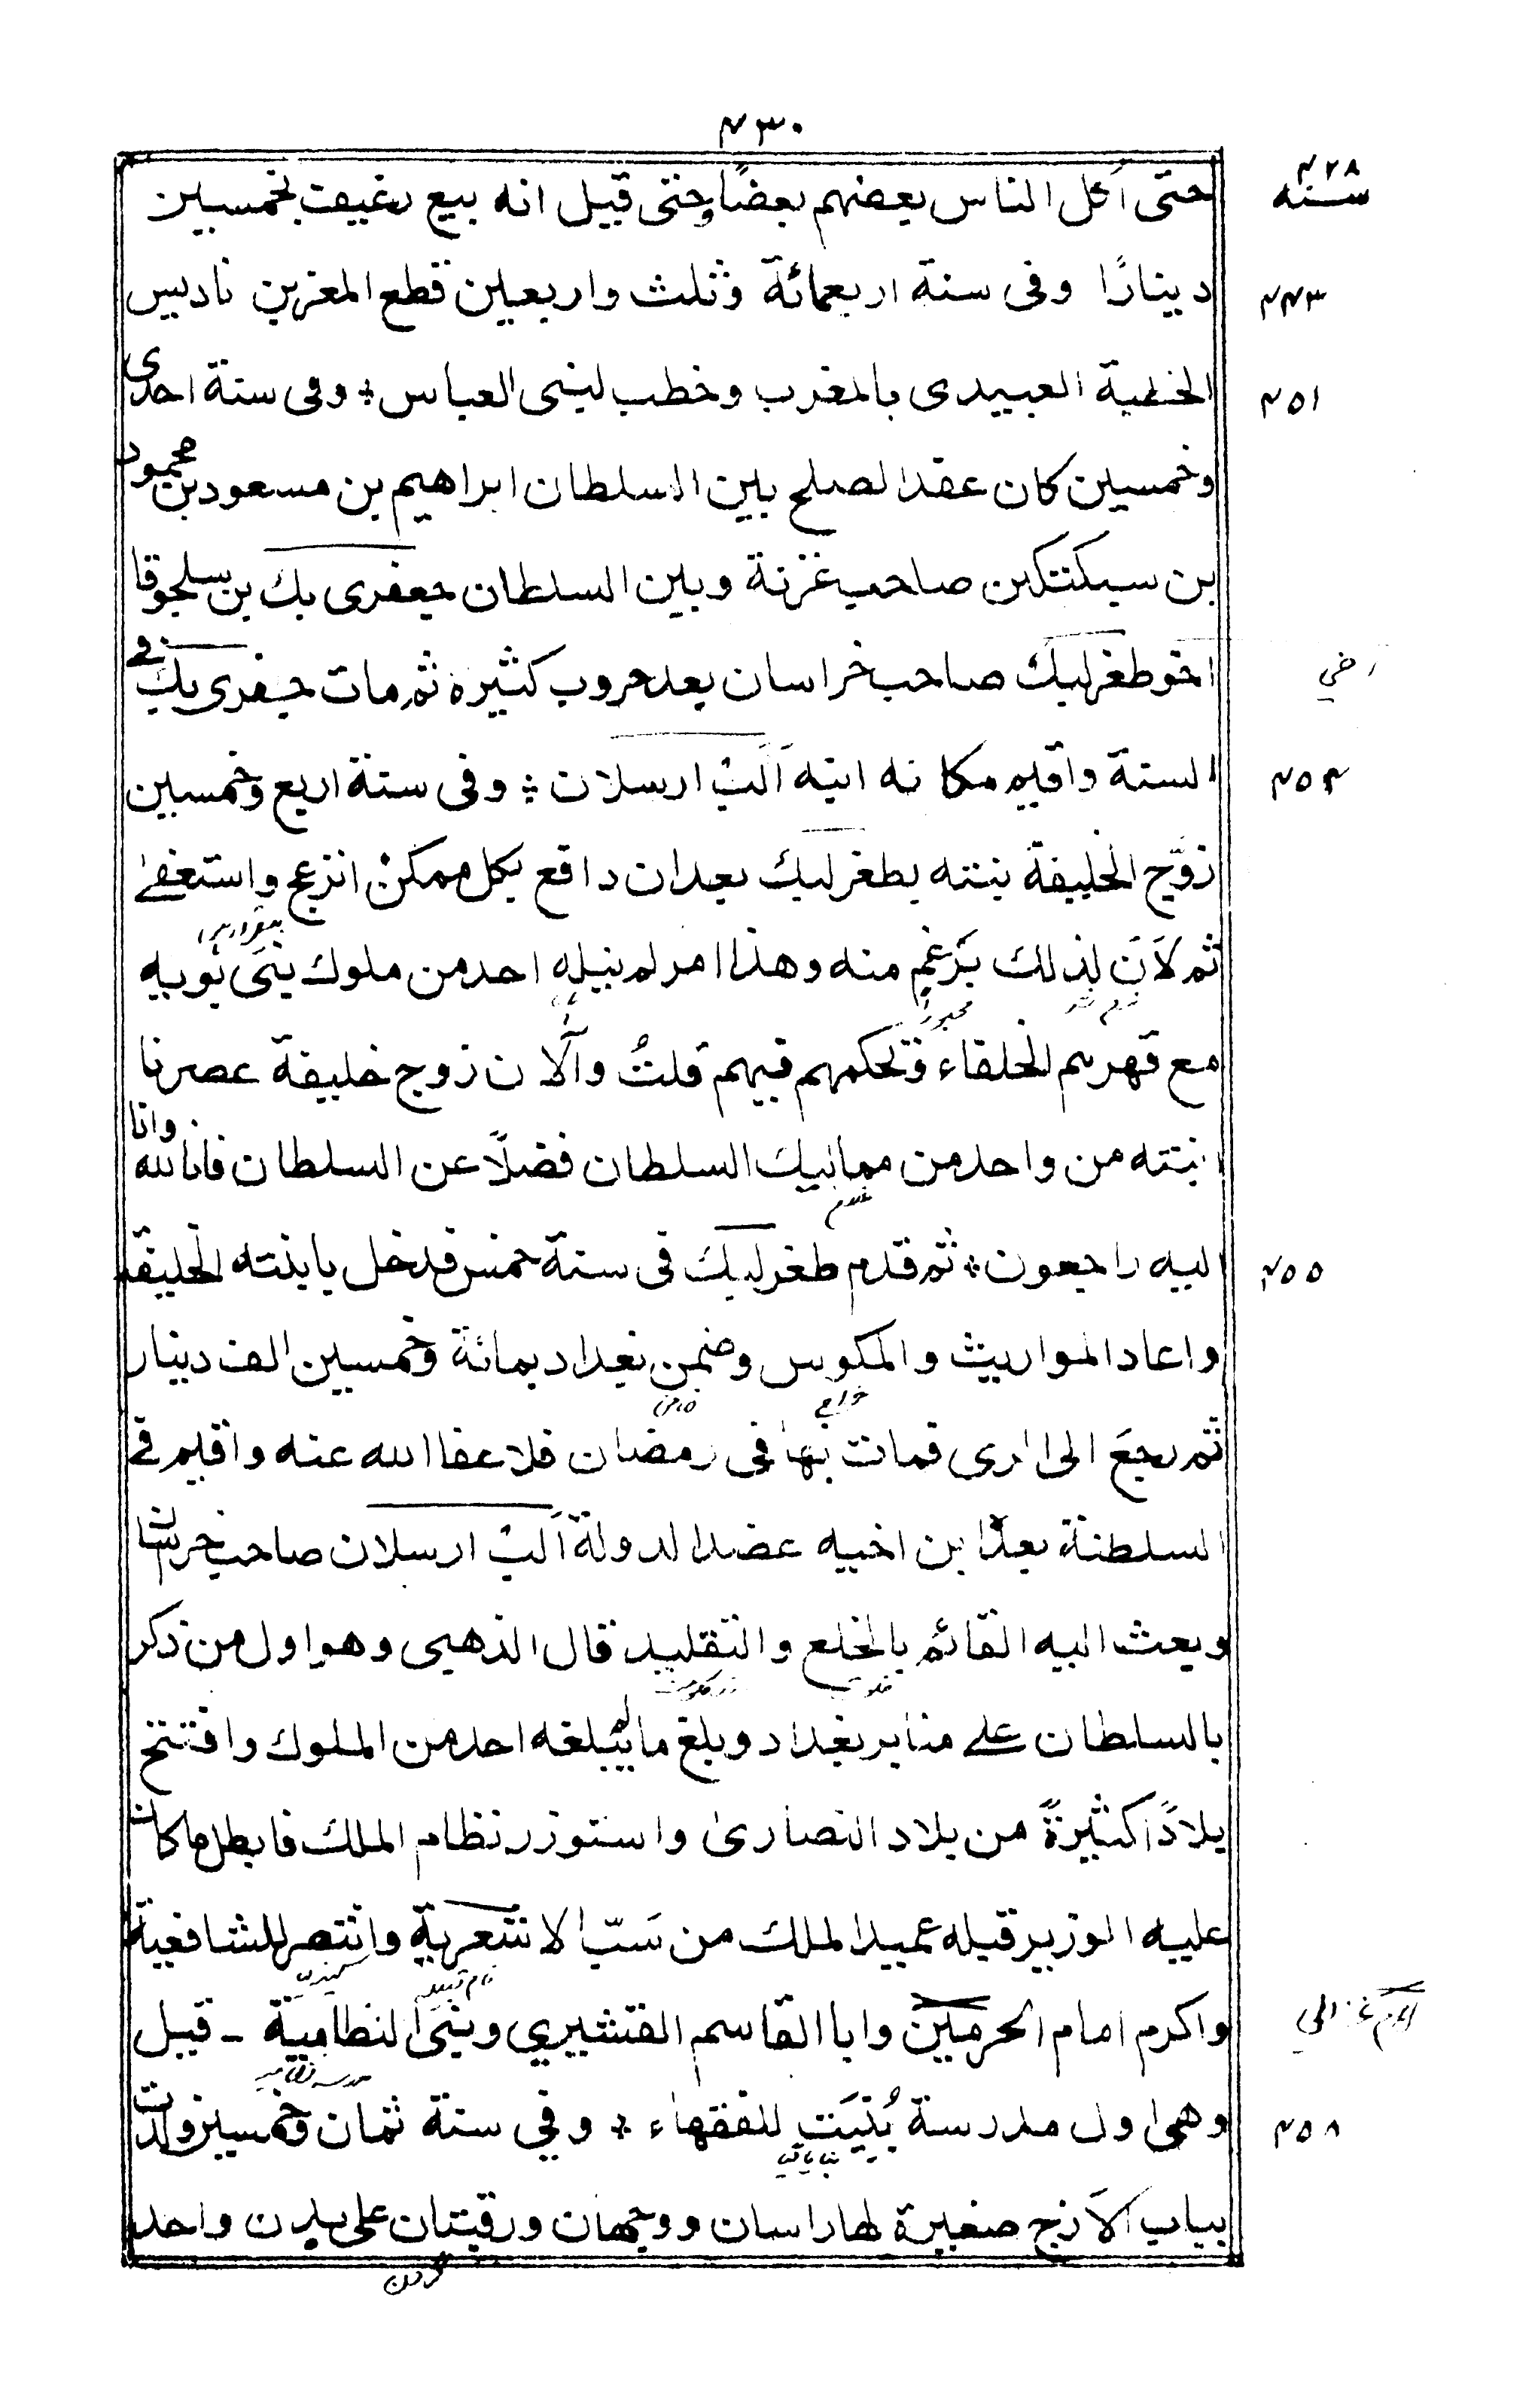 ۴۳۰
۴۲۸
سنه
حتى أكل الناس بعضهم بعضًا وحتى قيل انه بيع رغيف بخمسين
دينارًا وفى سنة اربعمائة وثلث واربعين قطع المعز بن ناديس
۴۴۳
الخطبة العبيدى بالمغرب وخطب لبنى العباس؞ وفى سنة احدى
۴۵۱
وخمسين كان عقد الصلح بين السلطان ابراهيم بن مسعود بن محمود
بن سبكتكين صاحب غزنة وبين السلطان جعفرى بك بن سلجوقا
اخو طغرلبك صاحب خراسان بعد حروب كثيرة ثم مات جفرى بك في
السنة واقيم مكانه ابنه آلَبْ ارسلان ؞ وفى سنة اربع وخمسين
۴۵۴
زوّج الخليفة بنته بطغرلبك بعد ان دافع بكل ممكن وانزعج واستعفى
ثم لَانَ لذلك بِرَغمٍ منه وهذا امر لم ينله احد من ملوك بنى بُويه
مع قهرهم الخلفاء وتحكمهم فيهم قلتُ والآن زوج خليفة عصرنا
ابنته من واحد من مماليك السلطان فضلًا عن السلطان فانا لله وانا
غلام
اليه راجعون؞ ثم قدم طغرلبك فى سنة خمس فدخل بابنته الخليفة
۴۵۵
واعاد المواريث والمكوس وضمن بغداد بمائة وخمسين الف دينار
خراج
ضامن
ثم رجع الى الرى فمات بها فى رمضان فلا عفا الله عنه واقيم فى
السلطنة بعده ابن اخيه عضد الدولة آلَبْ ارسلان صاحب خراسان
وبعث اليه القائم بالخلع والتقليد قال الذهبى وهو اول من ذكر
بالسلطان على منابر بغداد وبلغ ما لم يبلغه احد من الملوك وافتتح
بلادًا كثيرةً من بلاد النصارىٰ واستوزر نظام الملك فابطل ما كان
عليه الوزير قبله عميد الملك من سَبّ الاشعرية وانتصر للشافعية
نام قبيله
واكرم امام الحرمين وابا القاسم القشيرى وبنى النظامية - قيل
مدرسه نظاميه
وهى اول مدرسة بُنِيَت للفقهاء ؞ وفي سنة ثمان وخمسين ولدت
۴۵۸
بنا يا گيا
بباب الازج صغيرة لها راسان ووجهان ورقبتان على بدن واحد
گردن